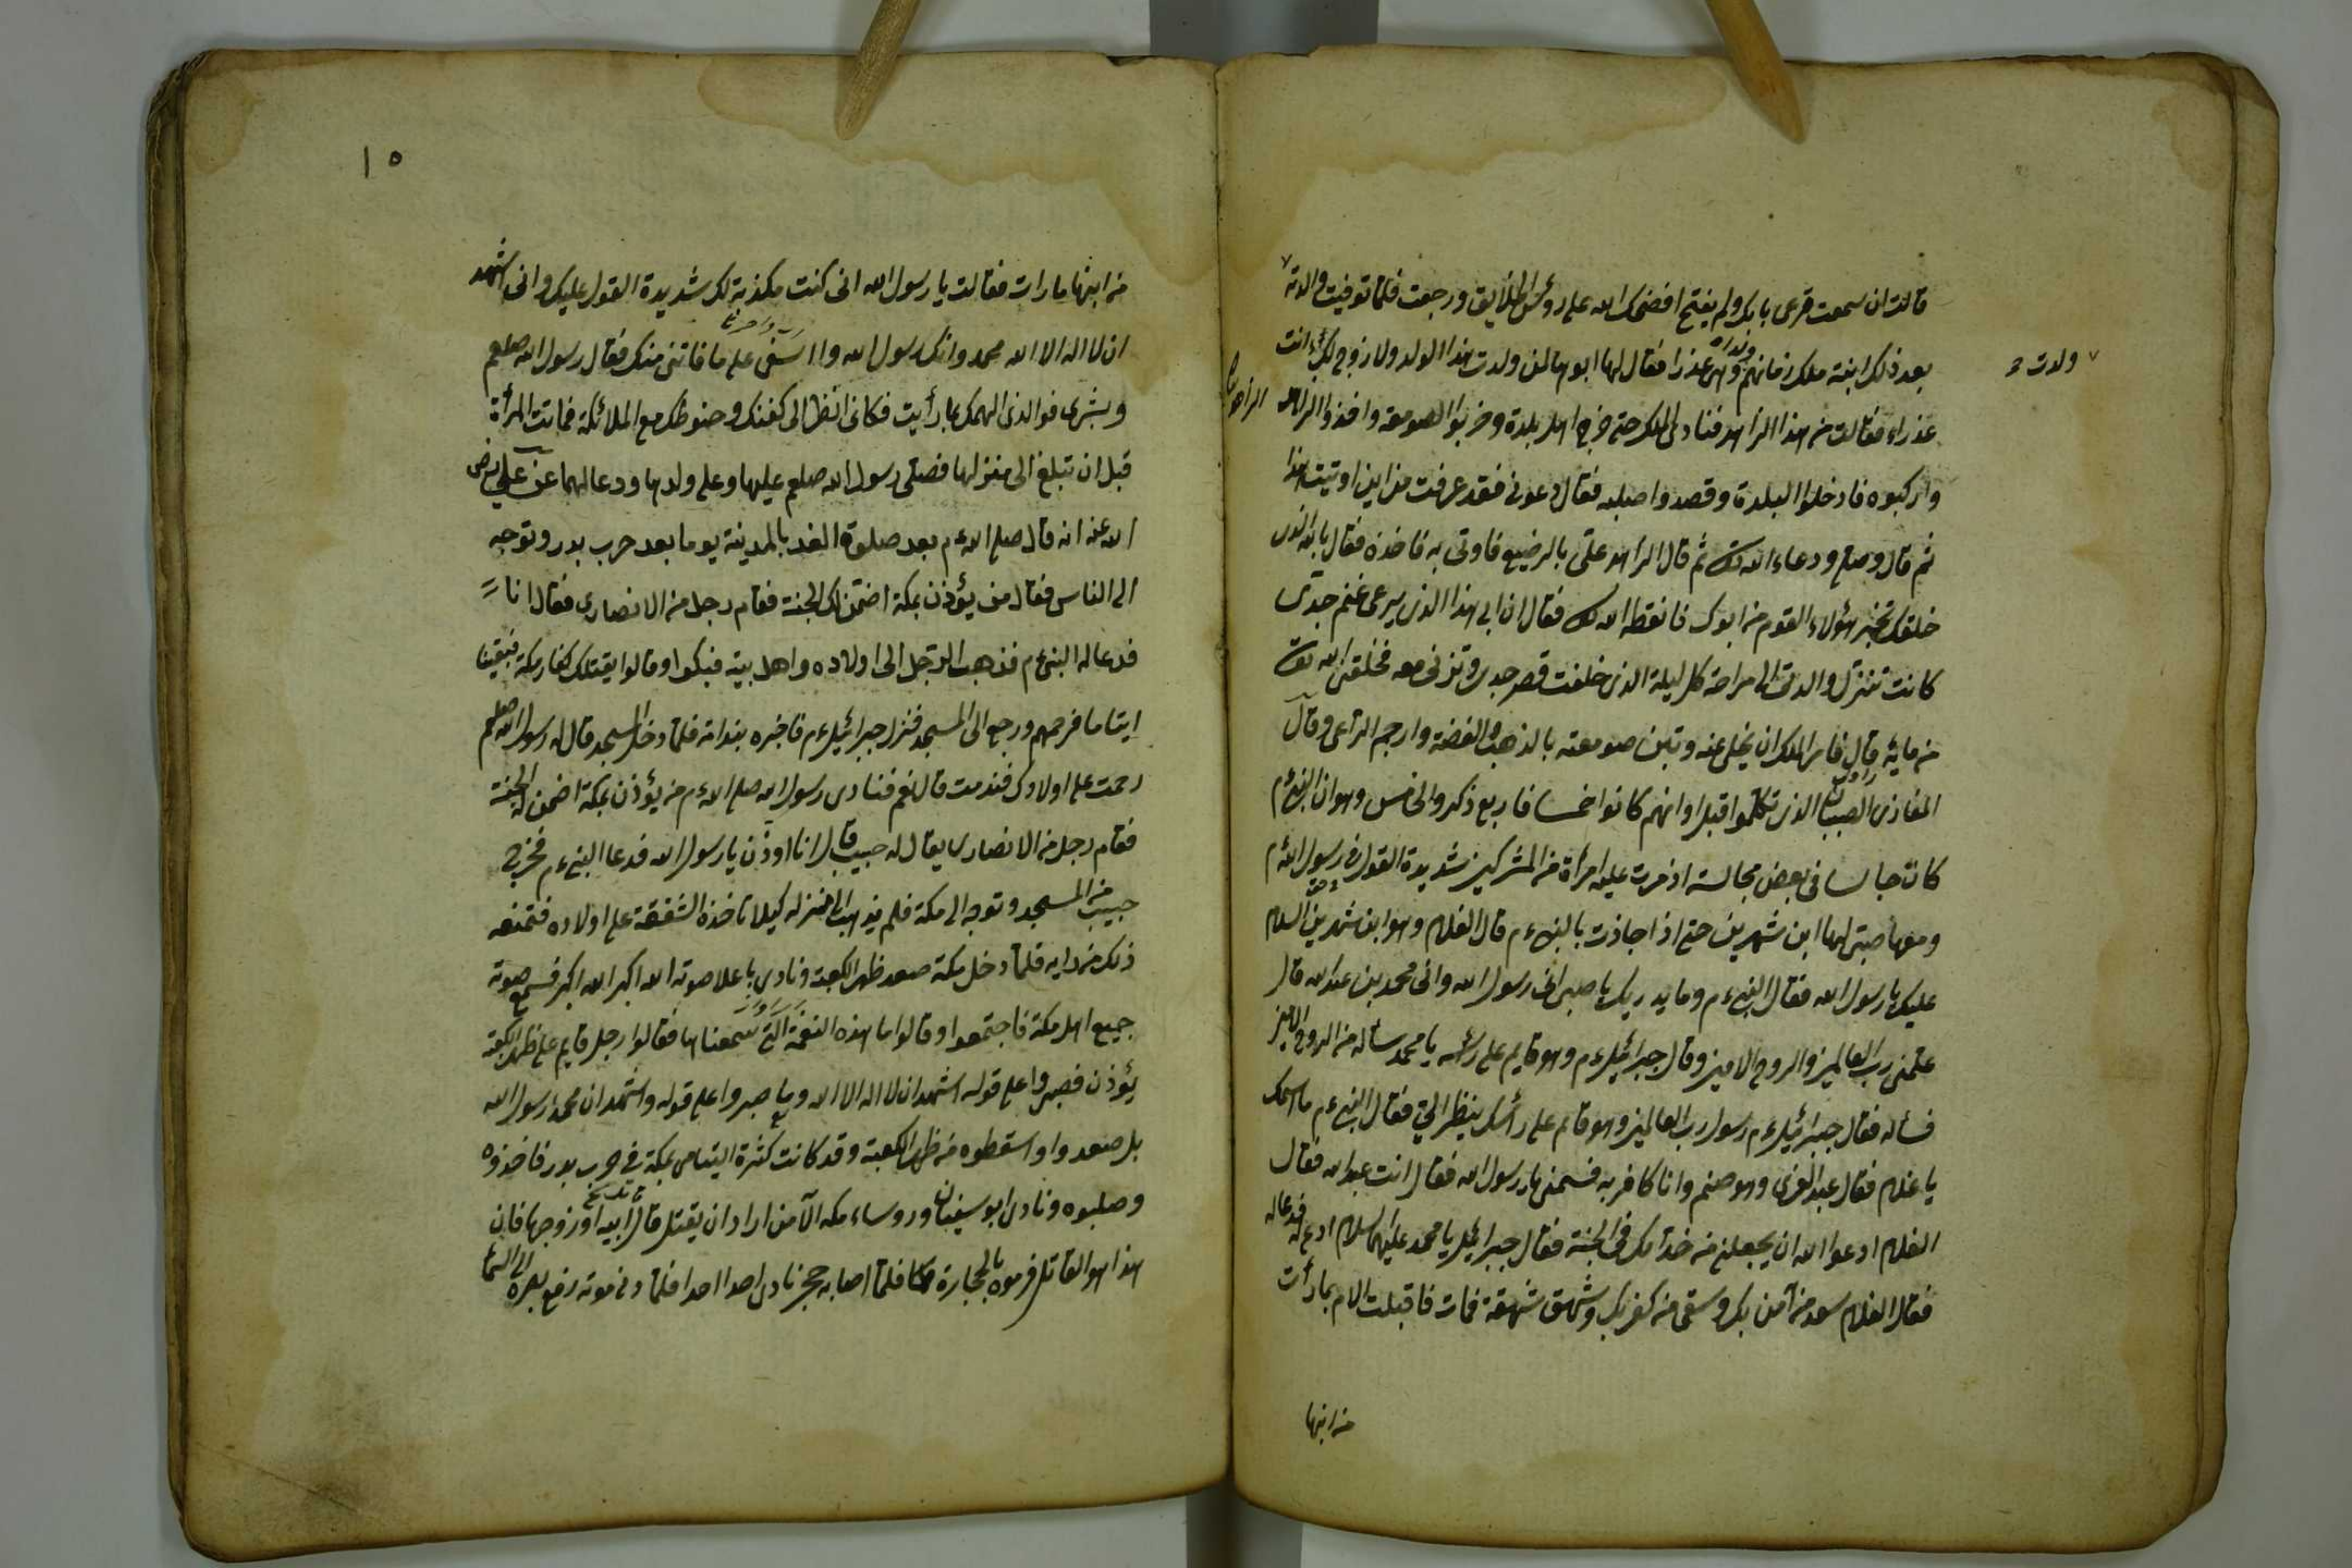 قالت ان سمعت قرعى بابك ولم يفتح افضحك الله على رؤس الخلايق ورجعت فلما توفيت والدته
بعد ذلك ابنة ملك زمانهم وهى عذرا فقال لها ابوها لمن ولدت هذا الولد ولا زوج لك انت
ولدت
عذراء فقالت من هذا الراهد فنادى الملك حتى خرج اهل بلدة وخربوا الصومعة واخذوا الراهد
واركبوه فادخلوا البلدة وقصدوا صلبه فقال دعونى فقد عرفت من اين اوتيت هذا
ثم قال وصلى ودعاء الله ثم قال الراهد علىّ بالرضيع فاوتى به فاخذه فقال بالله الذى
خلقك تخبر هؤلاء القوم من ابوك فانطقه الله فقال ان ابى هذا الذى يرعى غنم جدى
كانت تنزل والدتى الى مراحه كل ليلة الذى خلفت قصر جدى وتزنى معه فخلقنى الله تعالى
من مايه قال فامر الملك ان يخلى عنه وتبنى صومعته بالذهب والفضة وارجم الراعى وقال
المغازى الصبيان الذى تكلموا قبل اوانهم كانوا خمسا فاربع ذكر والخامس وهو ان النبىءم
كان جالسا فى بعض مجالسه اذ مرت عليه امرأة من المشركين شديدة القول فى رسول اللهءم
ومعها صبى لها ابن شهرين حتى اذا جاذت بالنبىءم قال الغلام وهو ابن شهرين السلام
عليك يا رسول الله فقال النبىءم وما يدريك يا صبى انى رسول الله وانى محمد بن عبد الله قال
علمنى رب العالمين والروح الامين وقال جبرائيلءم وهو قايم على رأسه يا محمد سأله من الروح الامين
فسأله فقال جبرائيلءم رسول رب العالمين وهو قايم على رأسك ينظر الىّ فقال النبىءم ما اسمك
يا غلام فقال عبد العزى وهو صنم وانا كافر به فسمنى يا رسول الله فقال انت عبد الله فقال
الغلام ادعوا الله ان يجعلنى من خدامك فى الجنة فقال جبرائيل يا محمد عليهما السلام ادع له فدعا له
فقال الغلام سعد من آمن بك وسقى من كفر بك وشهق شهقة فمات فاقبلت الام بما رأت
من ابنها
١٥
من ابنها ما رات فقالت يا رسول الله انى كنت مكذبة لك شديدة القول عليك وانى اشهد
ان لا اله الا الله محمد وانك رسول الله وا اسفى على ما فاتنى منك فقال رسول الله صلعم
وبشرى فوالذى الهمك بما رأيت فكانى انظر الى كفنك وحنوطك مع الملائكة فماتت المرأة
قبل ان تبلغ الى منزلها فصلى رسول الله صلعم عليها وعلى ولدها ودعا لهما عن على رضى
الله عنه انه قال صلى اللهءم بعد صلوة الغد بالمدينة يوما بعد حرب بدر وتوجه
الى الناس فقال من يؤذن بمكة اضمن له الجنة فقام رجل من الانصارى فقال انا
فدعا له النبىءم فذهب الرجل الى اولاده واهل بيته فبكوا وقالوا يقتلك كفار مكة فبقينا
ايتاما فرحمهم ورجع الى المسجد فنزل جبرائيلءم فاخبره بندامة فلما دخل المسجد قال له رسول الله صلعم
رحمت على اولادك فندمت قال نعم فنادى رسول الله صلى اللهءم من يؤذن بمكة اضمن له الجنة
فقام رجل من الانصارى يقال له حبيب قال انا اوذن يا رسول الله فدعا النبىءم فخرج
حبيب من المسجد وتوجه الى مكة فلم يذهب الى منزله كيلا تاخذه الشفقة على اولاده فتمنعه
ذلك من رايه فلما دخل مكة صعد ظهر الكعبة ونادى باعلا صوته الله اكبر الله اكبر فسمع صوته
جميع اهل مكة فاجتمعوا وقالوا ما هذه النغمة التى سمعناها فقالوا رجل قايم على ظهر الكعبة
يؤذن فصبروا على قوله اشهد ان لا اله الا الله وما صبروا على قوله واشهد ان محمد رسول الله
بل صعدوا واسقطوه من ظهر الكعبة وقد كانت كثرة اليتامى بمكة فى حرب بدر فاخذوه
وصلبوه ونادى ابو سيفان وروساء مكه الآ من اراد ان يقتل قاتل ابيه او زوجها فان
هذا هو القاتل فرموه بالحجارة فلما اصابه حجر نادى احدا احدا فلما دنى موته رفع بصره الى السماء